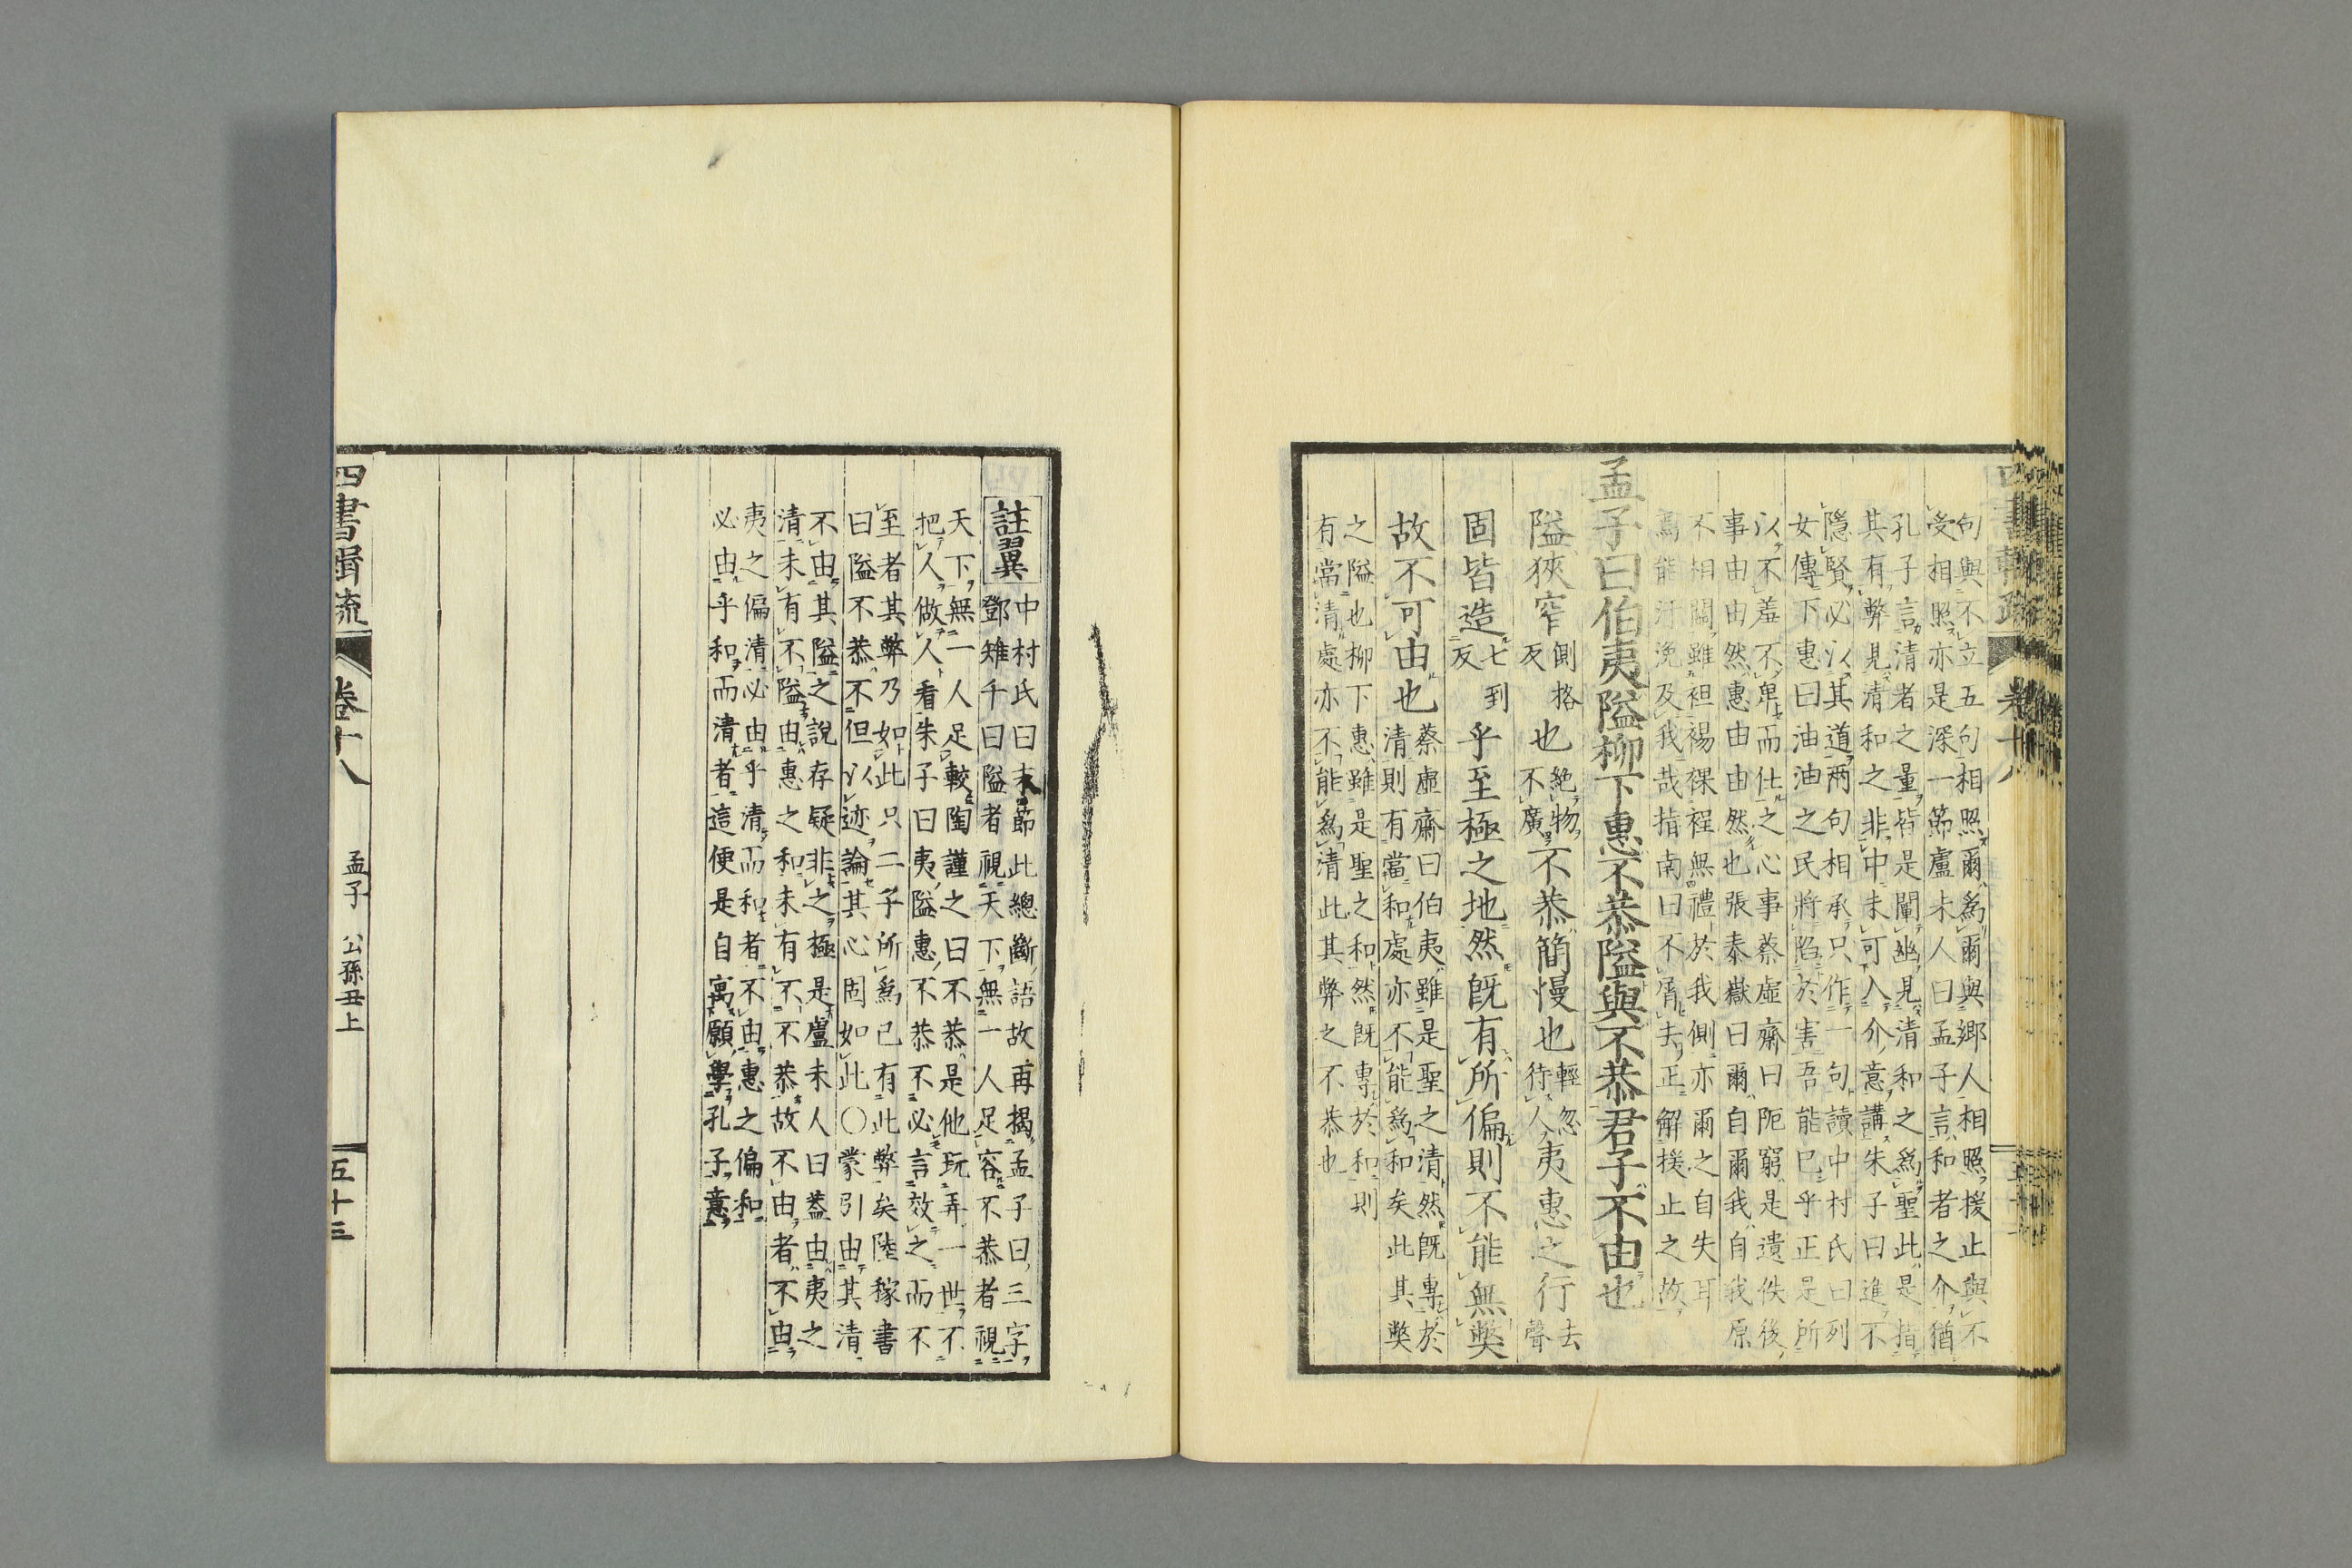 句與不立五句相照爾爲爾與鄉人相照援止與不
受相照亦是深一節盧未人曰孟子言和者之介猶
孔子言清者之量皆是闡幽見清和之爲聖此是指
其有弊見清和之非中未可入介意講朱子曰進不
隱賢必以其道兩句相承只作一句讀中村氏曰列
女傳下惠曰油油之民將陷於害吾能已乎正是所
以不羞不卑而仕之心事蔡虛齋曰阨窮是遺佚後
事由由然惠由由然也張泰嶽曰爾自爾我自我原
不相關雖袒裼裸裎無禮於我側亦爾之自失耳
焉能汙浼及我哉指南曰不屑去正解援止之故
孟子曰伯夷隘柳下惠不恭隘與不恭君子不由也
隘狹窄側格反也絶物不廣不恭簡慢也輕忽待人夷惠之行去聲
固皆造七到反乎至極之地然旣有所偏則不能無獘
故不可由也蔡虛齋曰伯夷雖是聖之清然旣專於
清則有當和處亦不能爲和矣此其獘
之隘也柳下惠雖是聖之和然旣專於和則
有當清處亦不能爲清此其弊之不恭也
註翼中村氏曰末節此總斷語故再揭孟子曰三字
鄧雉千曰隘者視天下無一人足容不恭者視
天下無一人足較陶謹之曰不恭是他玩弄一世不
把人做人看朱子曰夷隘惠不恭不必言效之而不
至者其弊乃如此只二子所爲已有此弊矣陸稼書
曰隘不恭不但以迹論其心固如此〇蒙引由其清
不由其隘之說存疑非之極是盧未人曰蓋由夷之
清未有不隘由惠之和未有不不恭故不由者不由
夷之偏清必由乎清而和者不由惠之偏和
必由乎和而清者這便是自寓願學孔子意
四書輯疏
卷十八
孟子 公孫丑上
五十三